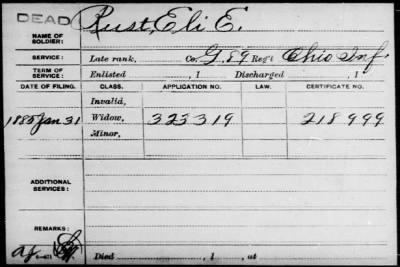 DEAD
Rust, Eli E.
NAME OF SOLDIER:
SERVICE: Late rank, Co. G. 89 Reg't Ohio Inf.
TERM OF SERVICE: Enlisted , 1 Discharged , 1
DATE OF FILING. CLASS. APPLICATION NO. LAW. CERTIFICATE NO.
Invalid,
1885 Jan 31 Widow, 323319 218999
Minor,
ADDITIONAL SERVICES:
REMARKS:
Died , 1 , at